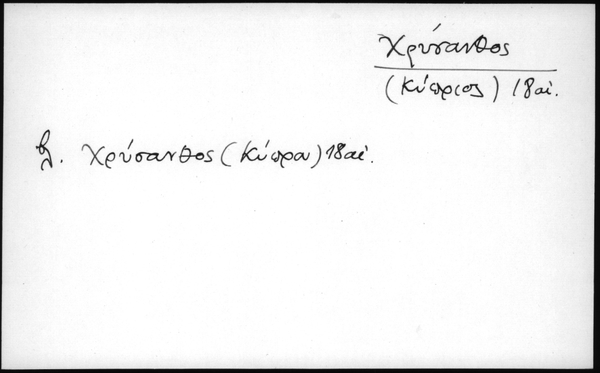 Χρύσανθος
(Κύπριος) 18 αἰ.
βλ. Χρύσανθος (Κύπρου) 18 αἰ.